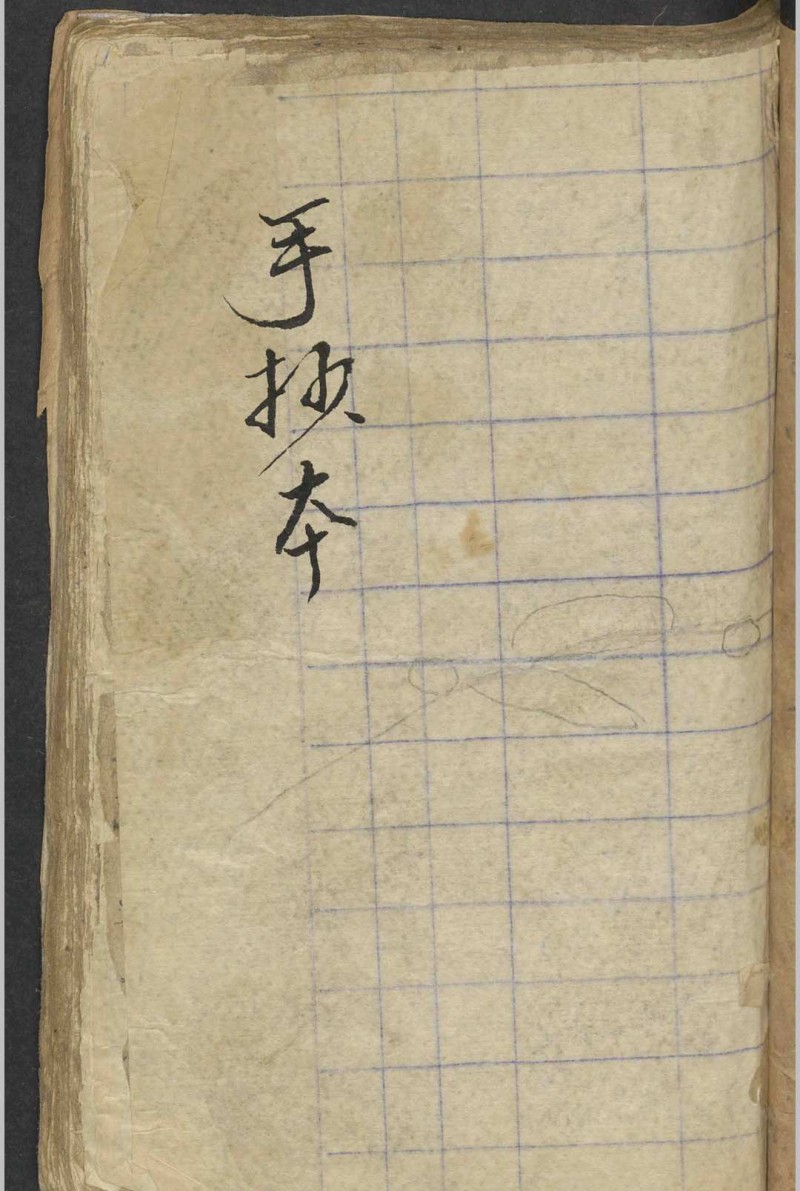 手抄本